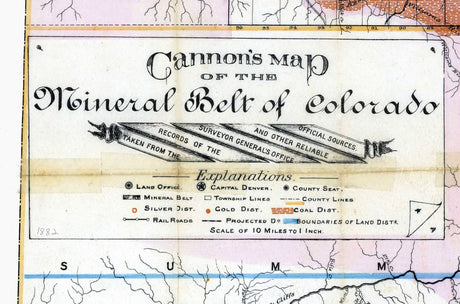 89 88 87 86 85 84 83 82
Cannon's Map
OF THE
Mineral Belt of Colorado
TAKEN FROM THE RECORDS OF THE SURVEYOR GENERAL'S OFFICE AND OTHER RELIABLE OFFICIAL SOURCES.
Explanations.
LAND OFFICE. CAPITAL DENVER. COUNTY SEAT.
MINERAL BELT TOWNSHIP LINES COUNTY LINES
SILVER DIST. GOLD DIST. COAL DIST.
RAIL ROADS PROJECTED DO BOUNDARIES OF LAND DISTR.
SCALE OF 10 MILES TO 1 INCH.
1882
S U M M